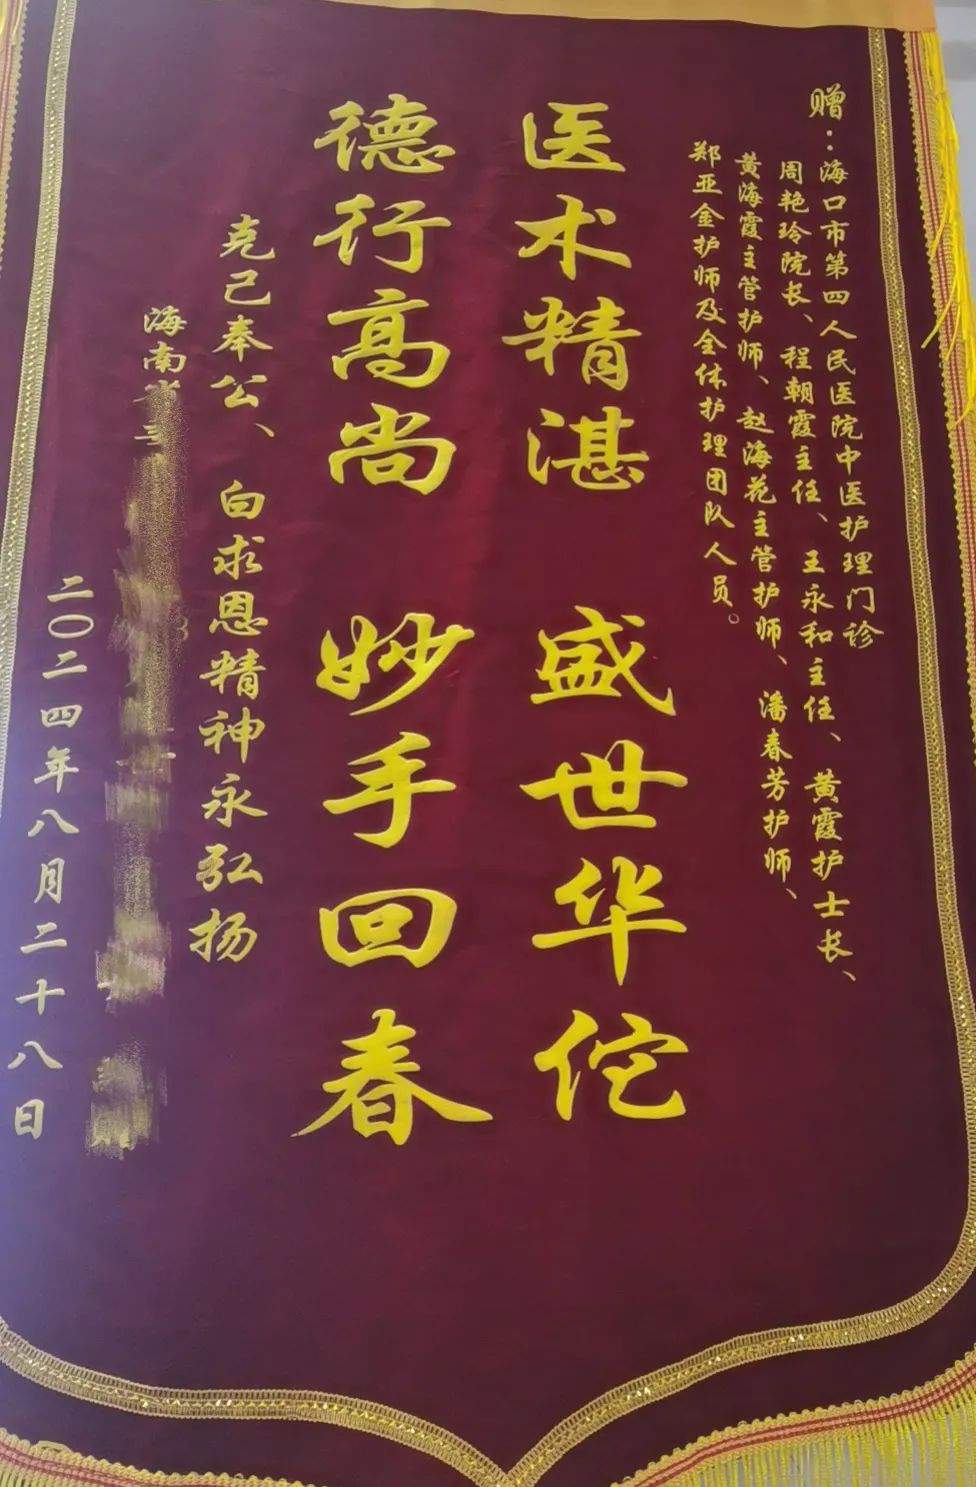 赠：海口市第四人民医院中医护理门诊
周艳玲院长、程朝霞主任、王永和主任、黄霞护士长、
黄海霞主管护师、赵海花主管护师、潘春芳护师、
郑亚金护师及全体护理团队人员。
医术精湛 盛世华佗
德行高尚 妙手回春
克己奉公、白求恩精神永弘扬
海南省
二〇二四年八月二十八日